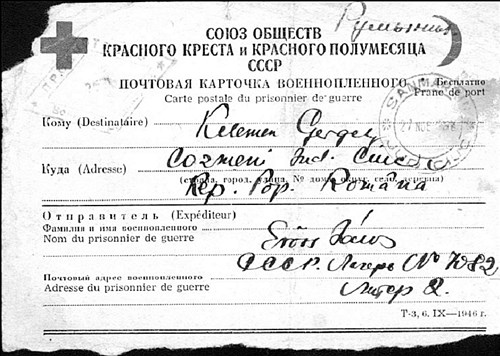 Румыния
СОЮЗ ОБЩЕСТВ
КРАСНОГО КРЕСТА и КРАСНОГО ПОЛУМЕСЯЦА
СССР
ПОЧТОВАЯ КАРТОЧКА ВОЕННОПЛЕННОГО Бесплатно
Carte postale du prisonnier de guerre Franc de port
Кому (Destinataire) Kelemen Gergely
Куда (Adresse) Cozmeni Jud. Ciuc
(страна, город, улица, № дома, округ, село, деревня)
Rep. Pop. Română
Отправитель (Expéditeur)
Фамилия и имя военнопленного
Nom du prisonnier de guerre János
СССР. Лагерь № 7082
Почтовый адрес военнопленного
Adresse du prisonnier de guerre Литер
Т-3, 6. IX—1946 г.